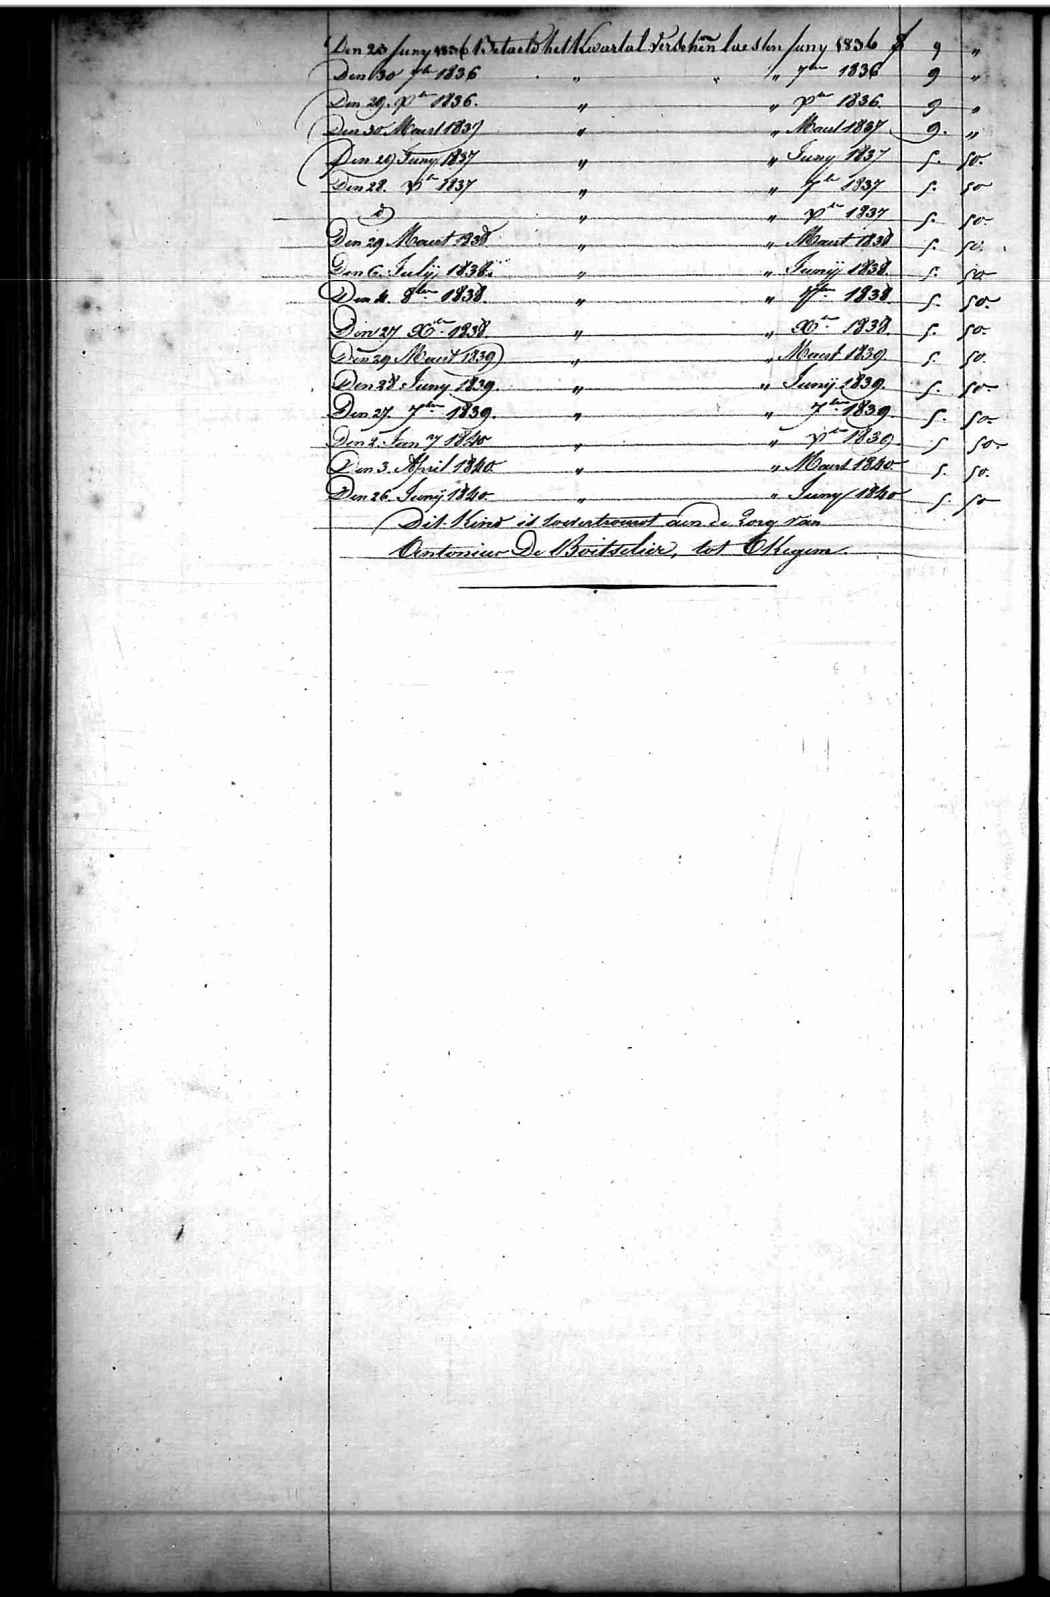 Den 23 Juny 1836 Betaeld het Kwartal Verschen laesten Juny 1836 f 9 "
Den 30 7br 1836 " " " 7bre 1836 9 "
Den 29. Xbr 1836. " " Xbr 1836. 9 "
Den 30. Maert 1837 " " Maert 1837 9. "
Den 29 Juny 1837 " " Juny 1837 5. 50.
Den 28. Xbr 1837 " " 7br 1837 5. 50
" " Xbr 1837 5. 50.
Den 29 Maert 1838 " " Maert 1838 5. 50.
Den 6. Julij 1838. " " Junij 1838. 5. 50
Den 4. 8bre 1838. " " 7bre 1838. 5. 50.
Den 27 Xbre 1838. " " Xbre 1838 5. 50.
Den 29 Maert 1839 " " Maert 1839 5. 50.
Den 28 Juny 1839. " " Junij 1839. 5. 50.
Den 27. 7bre 1839. " " 7bre 1839. 5. 50.
Den 2. Jan y 1840 " " Xbre 1839. 5 50.
Den 3. April 1840 " " Maert 1840 5. 50.
Den 26. Junij 1840. " " Juny 1840 5. 50
Dit Kind is toevertrouwt aen de Zorg van
Antonius De Boitselier, tot Okegem.